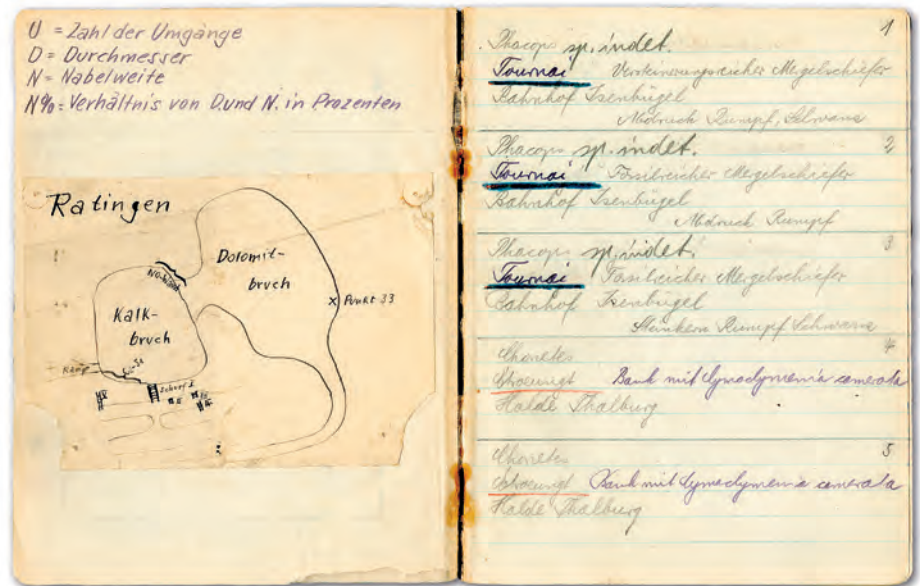 U = Zahl der Umgänge
D = Durchmesser
N = Nabelweite
N% = Verhältnis von D. und N. in Prozenten
Ratingen
Dolomit-
bruch
Kalk-
bruch
x Punkt 33
Schurf 1
1
Phacops sp. indet.
Tournai Versteinerungsreicher Mergelschiefer
Bahnhof Isenbügel
Abdruck Rumpf, Schwanz
2
Phacops sp. indet.
Tournai Fossilreicher Mergelschiefer
Bahnhof Isenbügel
Abdruck Rumpf
3
Phacops sp. indet.
Tournai Fossilreicher Mergelschiefer
Bahnhof Isenbügel
Steinkern Rumpf Schwanz
4
Chonetes
Stroeungt Bank mit Cymaclymenia camerata
Halde Thalburg
5
Chonetes
Stroeungt Bank mit Cymaclymenia camerata
Halde Thalburg